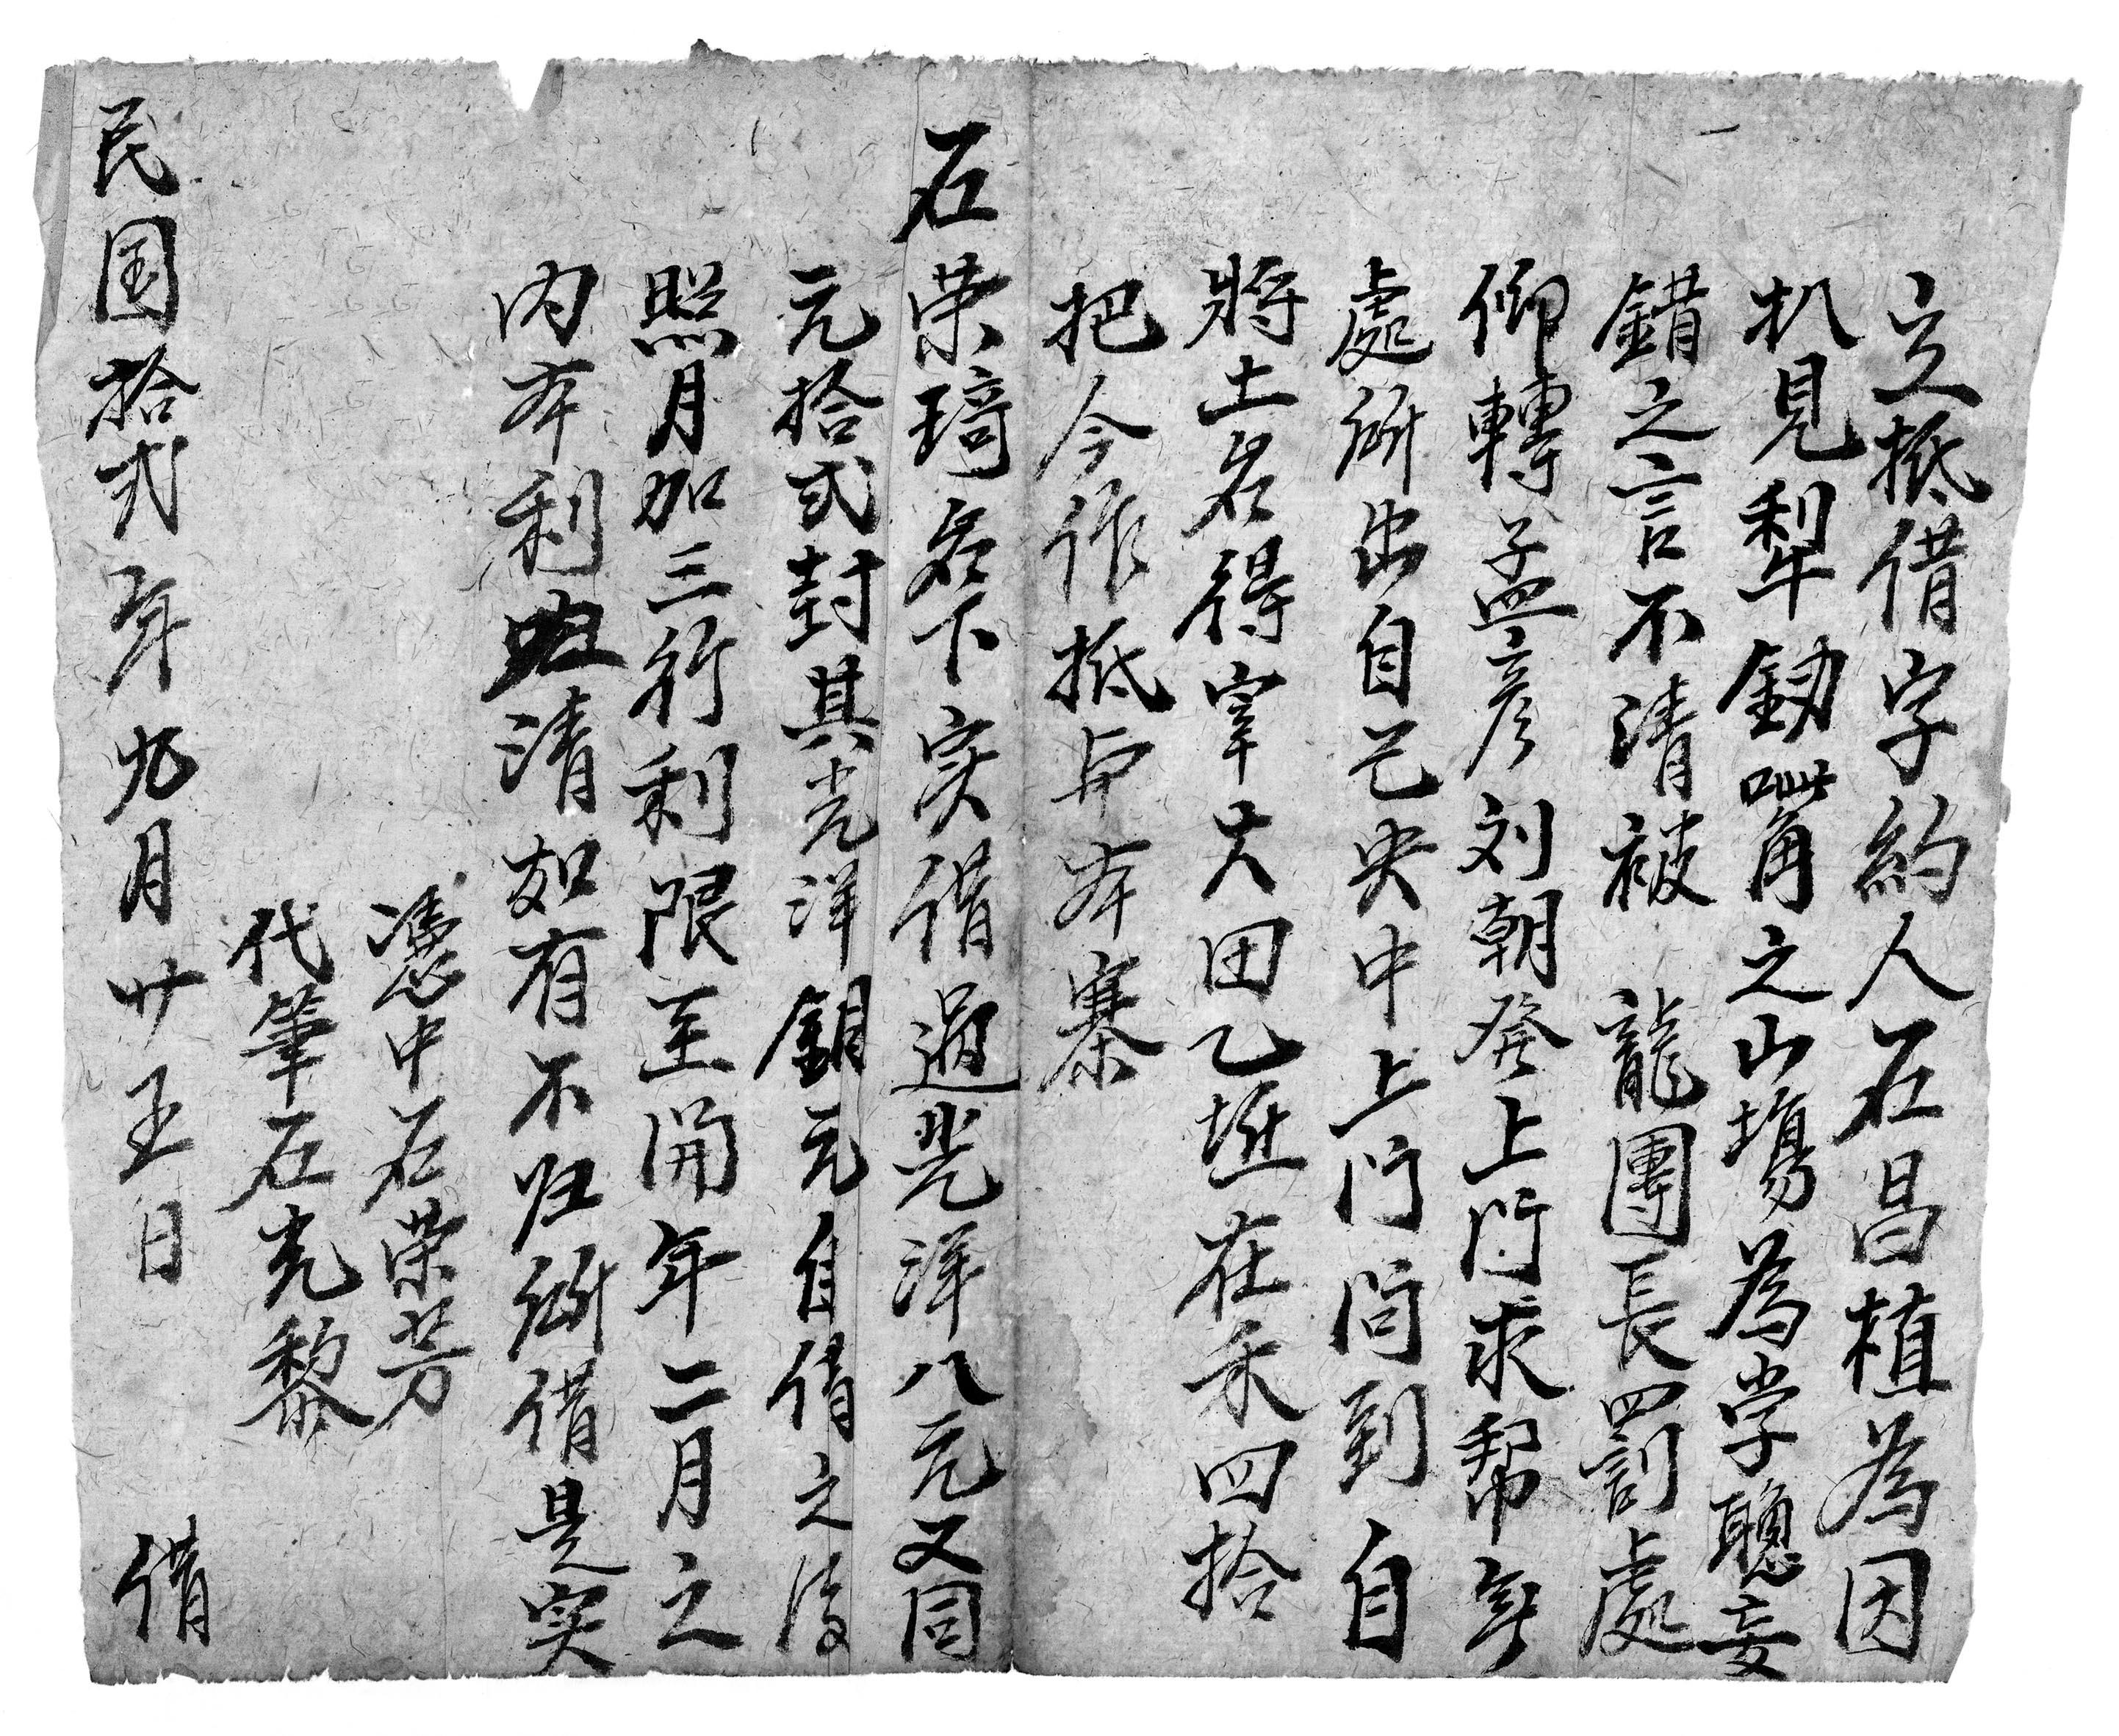 立抵借字約人石昌植為因
扒見犁釖嘴角之山塲為学聰妄
錯之言不清被 龍團長罰處
仰轉孟彦刘朝発上门求幇年
處所出自己央中上门问到自
將土名得宰大田乙坵在禾四拾
把今作抵与本寨
石荣琦名下实借過光洋八元又同
元拾弍封其光洋銅元自借之後
照月加三行利限至開年二月之
内本利清如有不归所借是实
憑中石荣芳
代筆石光黎
民国拾弍年九月廿五日 借